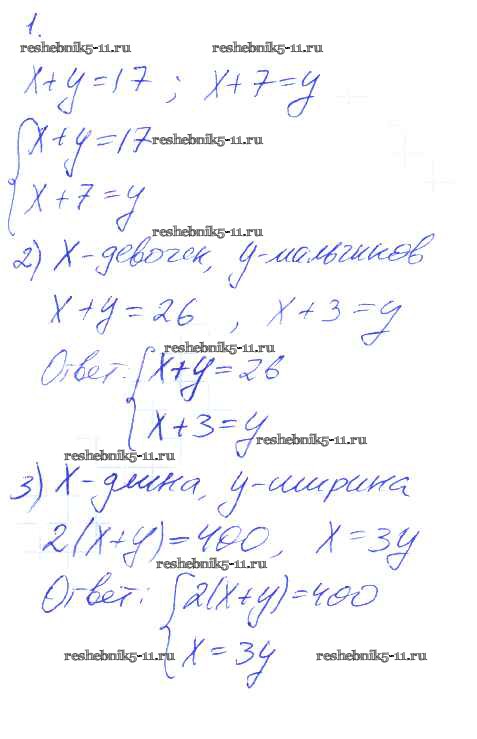 1.
reshebnik5-11.ru reshebnik5-11.ru
x+y=17 ; x+7=y
{x+y=17
reshebnik5-11.ru
x+7=y
reshebnik5-11.ru
2) x-девочек, y-мальчиков
x+y=26 , x+3=y
reshebnik5-11.ru
Ответ: {x+y=26
x+3=y
reshebnik5-11.ru
reshebnik5-11.ru
3) x-длина, y-ширина
2(x+y)=400, x=3y
reshebnik5-11.ru
Ответ: {2(x+y)=400
x=3y
reshebnik5-11.ru reshebnik5-11.ru